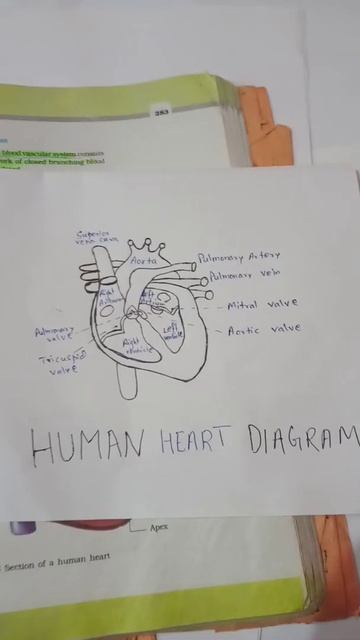 283
blood vascular system consists
ork of closed branching blood
Superior
vena cava
Aorta
Pulmonary Artery
Pulmonary vein
Right
Atrium
Left
Atrium
Mitral valve
Pulmonary
valve
Left
ventricle
Aortic valve
Right
ventricle
Tricuspid
valve
HUMAN HEART DIAGRAM
Apex
Section of a human heart